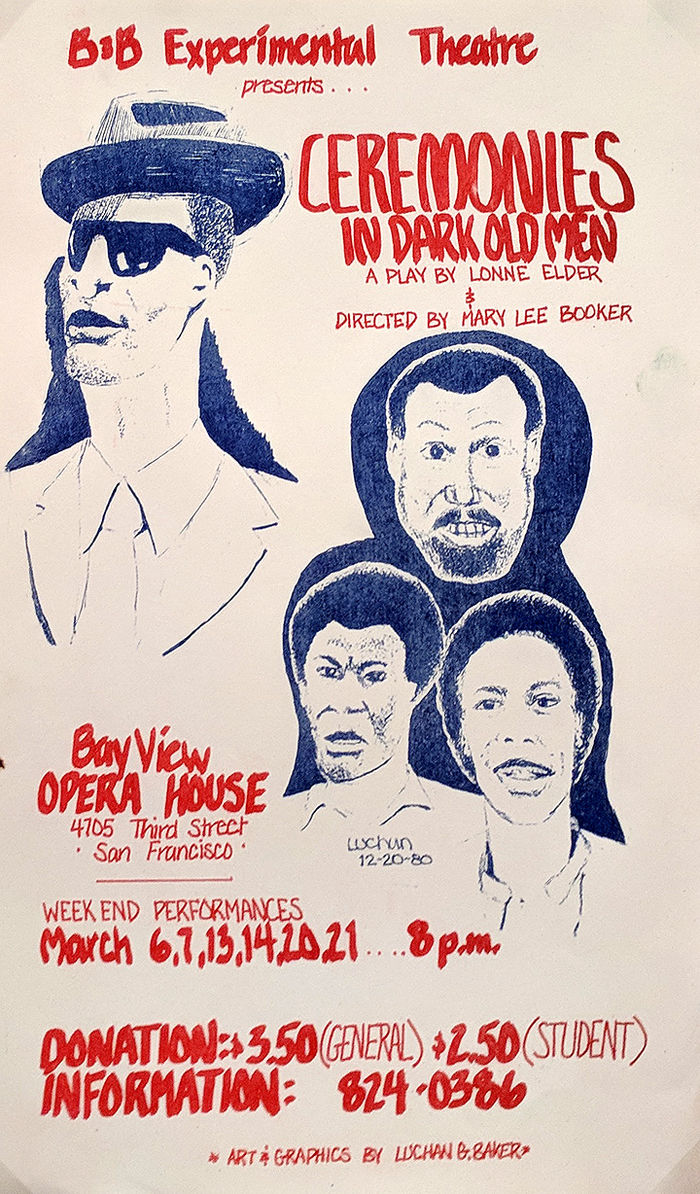 B&B Experimental Theatre
presents...
CEREMONIES
IN DARK OLD MEN
A PLAY BY LONNE ELDER
&
DIRECTED BY MARY LEE BOOKER
Bay View
OPERA HOUSE
4705 Third Street
· San Francisco ·
Luchan
12-20-80
WEEK END PERFORMANCES
March 6,7,13,14,20,21....8 p.m.
DONATION:$3.50 (GENERAL) $2.50 (STUDENT)
INFORMATION: 824-0386
* ART & GRAPHICS BY LUCHAN G. BAKER *